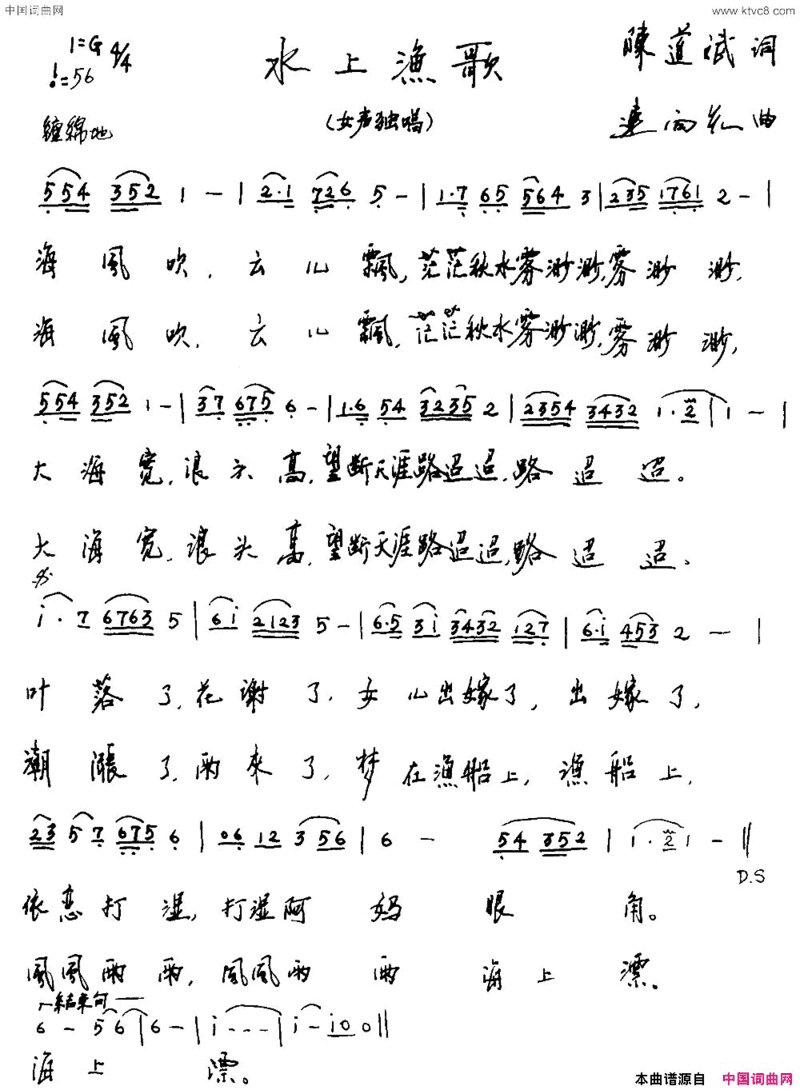 中国词曲网 www.ktvc8.com
1=G 4/4
♩=56
水上漁歌
陳道斌 词
(女声独唱)
缠绵地
连向先 曲
5 5 4 3 5 2 1 - | 2·1 7 2 6 5 - | 1·7 6 5 5 6 4 3 | 2 3 5 1 7 6 1 2 - |
海風吹,云儿飄,茫茫秋水雾渺渺,雾渺渺,
海風吹,云儿飄,茫茫秋水雾渺渺,雾渺渺,
5 5 4 3 5 2 1 - | 3 7 6 7 5 6 - | 1·6 5 4 3 2 3 5 2 | 2 3 5 4 3 4 3 2 1·2 | 1 - |
大海宽,浪头高,望断天涯路迢迢,路迢迢。
大海宽,浪头高,望断天涯路迢迢,路迢迢、
i·7 6 7 6 3 5 | 6 i 2 1 2 3 5 - | 6·5 3 i 3 4 3 2 1 2 7 | 6·i 4 5 3 2 - |
叶落了,花谢了,女儿出嫁了,出嫁了,
潮漲了,雨來了,梦在漁船上,漁船上,
2 3 5 7 6 7 5 6 | 0 6 1 2 3 5 6 | 6 - 5 4 3 5 2 | 1·2 1 - ||
D.S
依恋打湿,打湿阿妈眼角。
風風雨雨,風風雨雨海上漂。
结束句
6 - 5 6 | 6 - | i - - - | i - i 0 0 ||
海上漂。
本曲谱源自 中国词曲网